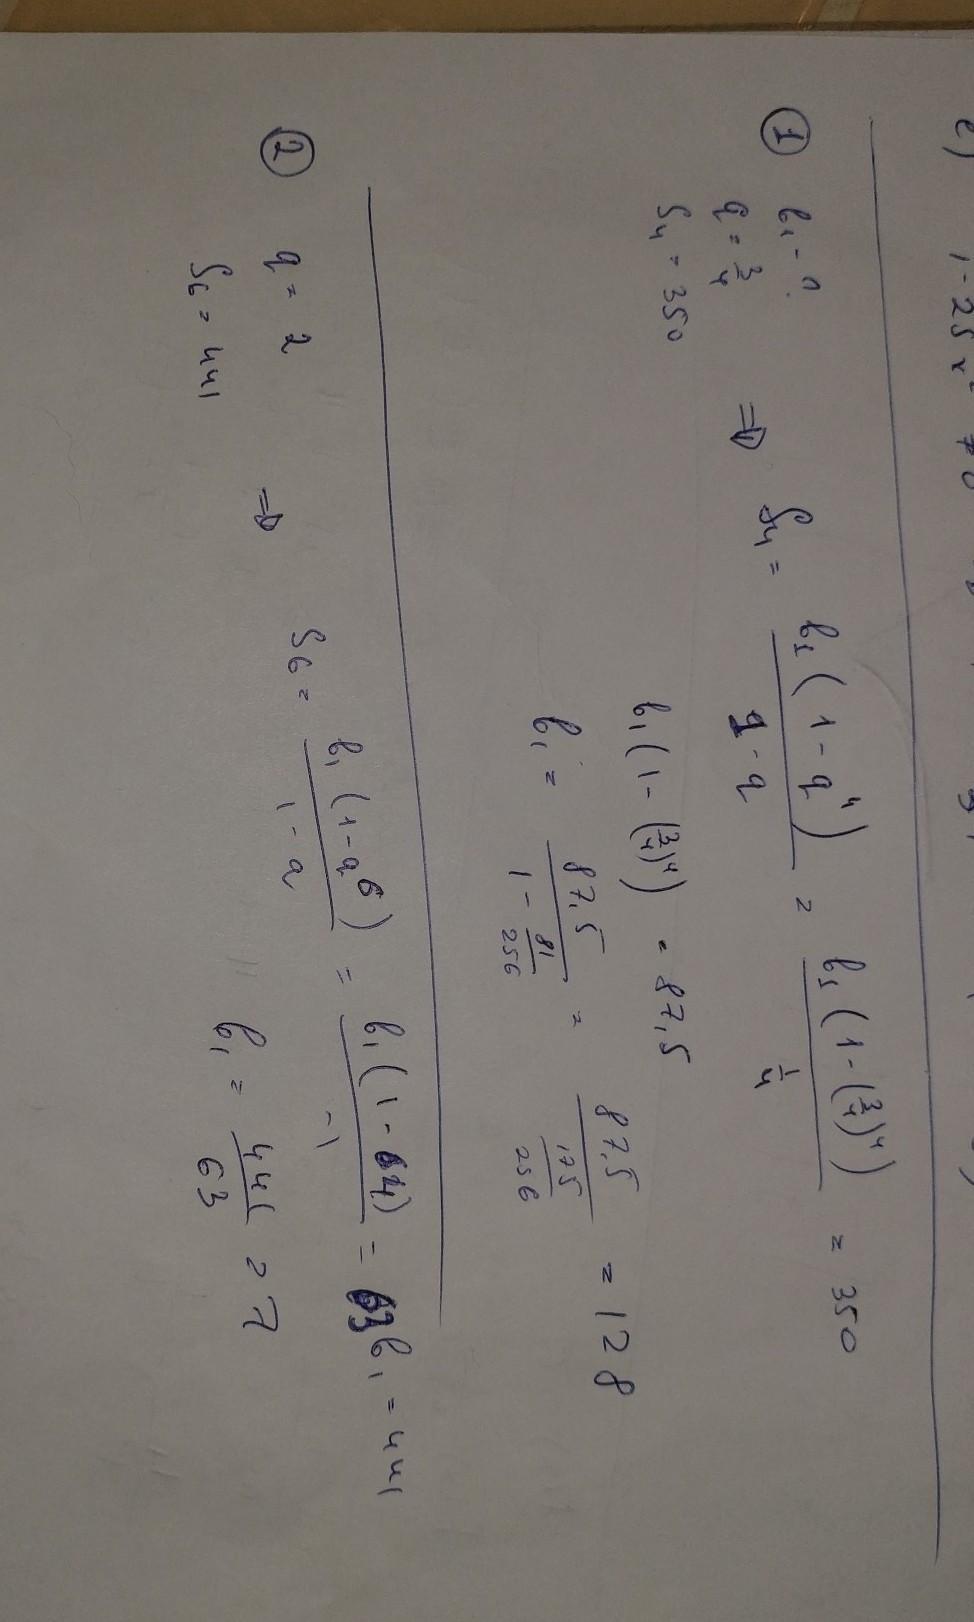 e) 1-25x² ≠ 0
① b₁ - ?
q = 3/4
S₄ = 350
⇒ S₄ = b₁(1-q⁴)/(1-q) = b₁(1-(3/4)⁴)/(1/4) = 350
b₁(1-(3/4)⁴) = 87,5
b₁ = 87,5/(1-81/256) = 87,5/(175/256) = 128
② q = 2
S₆ = 441
⇒ S₆ = b₁(1-q⁶)/(1-q) = b₁(1-64)/(-1) = 63b₁ = 441
b₁ = 441/63 = 7